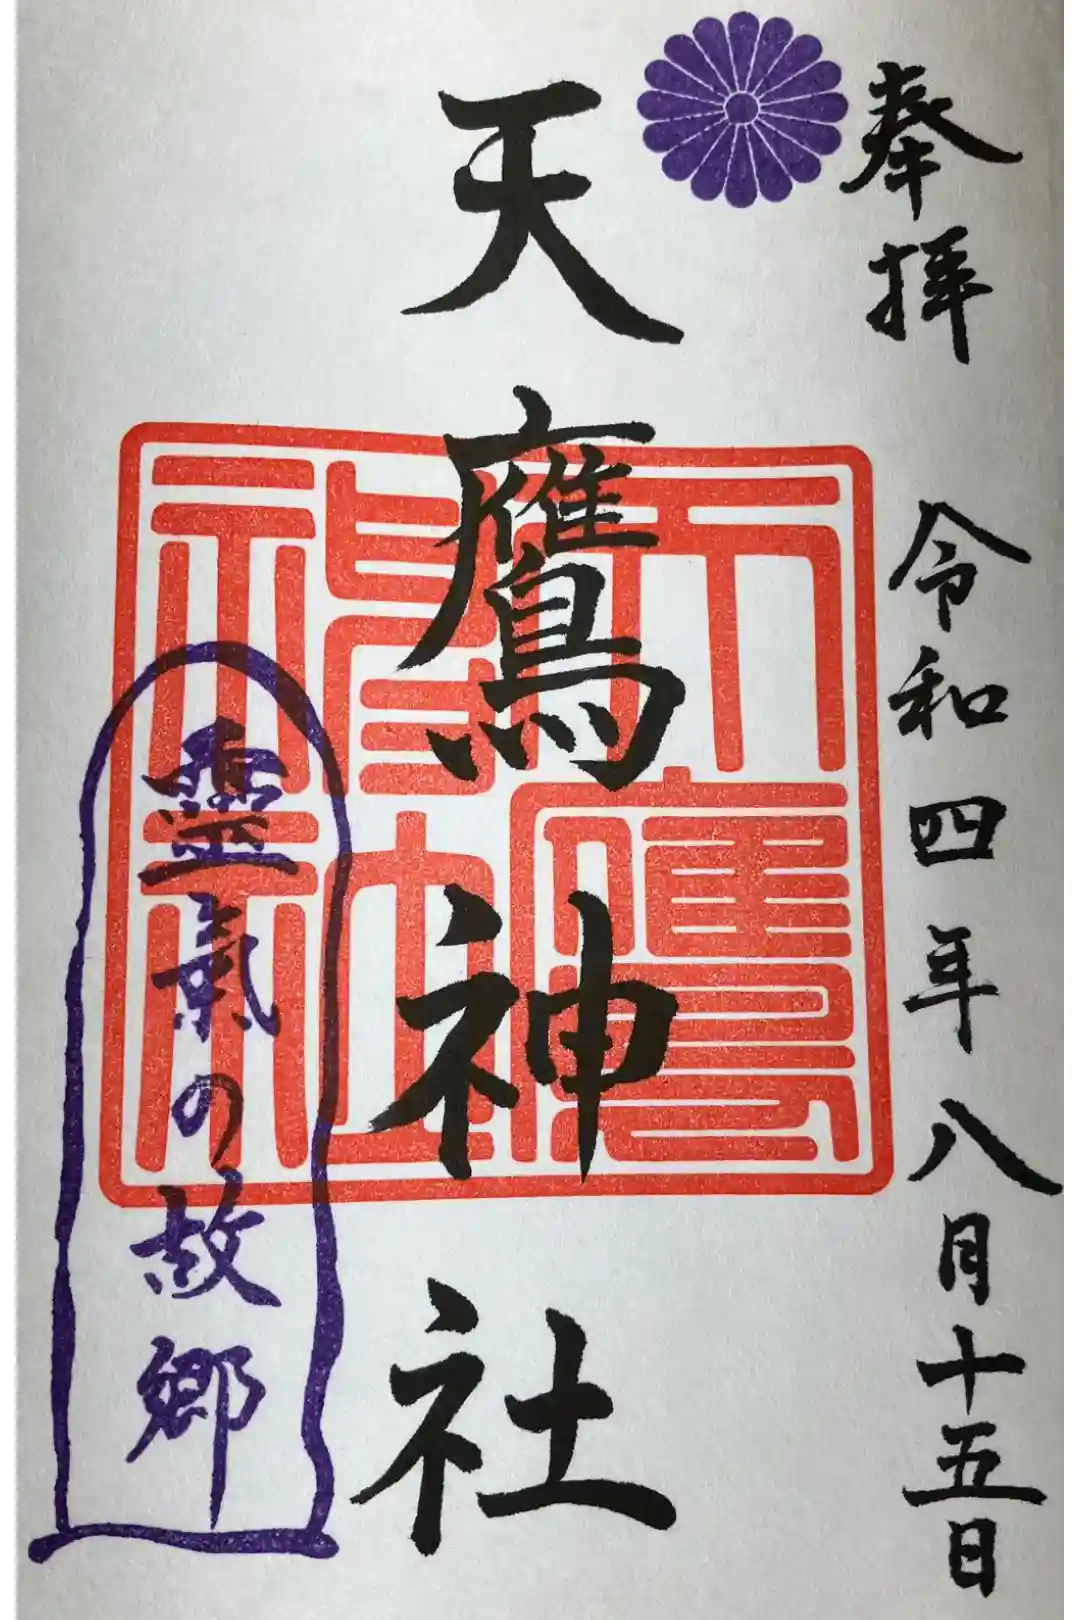 奉拝 令和四年八月十五日
天鷹神社
天鷹
神社
霊氣の故郷